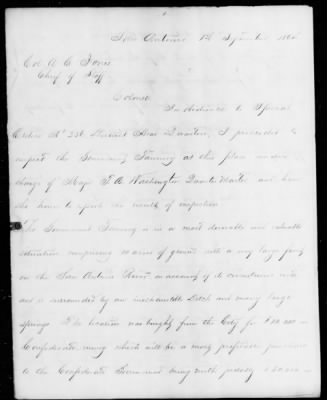 San Antonio 1st September 1864
Col A C Jones
Chief of Staff
Colonel
In obedience to Special
Orders No 236 District Head Quarters, I proceeded to
inspect the Government Tannery at this place under
charge of Major T. A. Washington Quarter Master and have
the honor to report the result of inspection
The Government Tannery is in a most desirable and valuable
situation comprising acres of ground with a very large front
on the San Antonio River on account of its circuitous
and is surrounded by an inexhaustible Ditch and many large
springs. The location was bought from the City for $10.000
Confederate money which will be a most profitable purchase
to the Confederate Government being worth $50.000